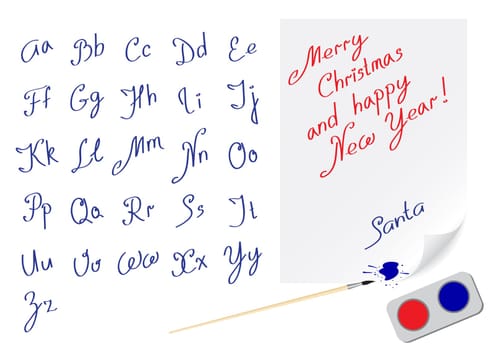 Aa Bb Cc Dd Ee
Ff Gg Hh Ii Jj
Kk Ll Mm Nn Oo
Pp Qq Rr Ss Tt
Uu Vv Ww Xx Yy
Zz
Merry
Christmas
and happy
New Year!
Santa